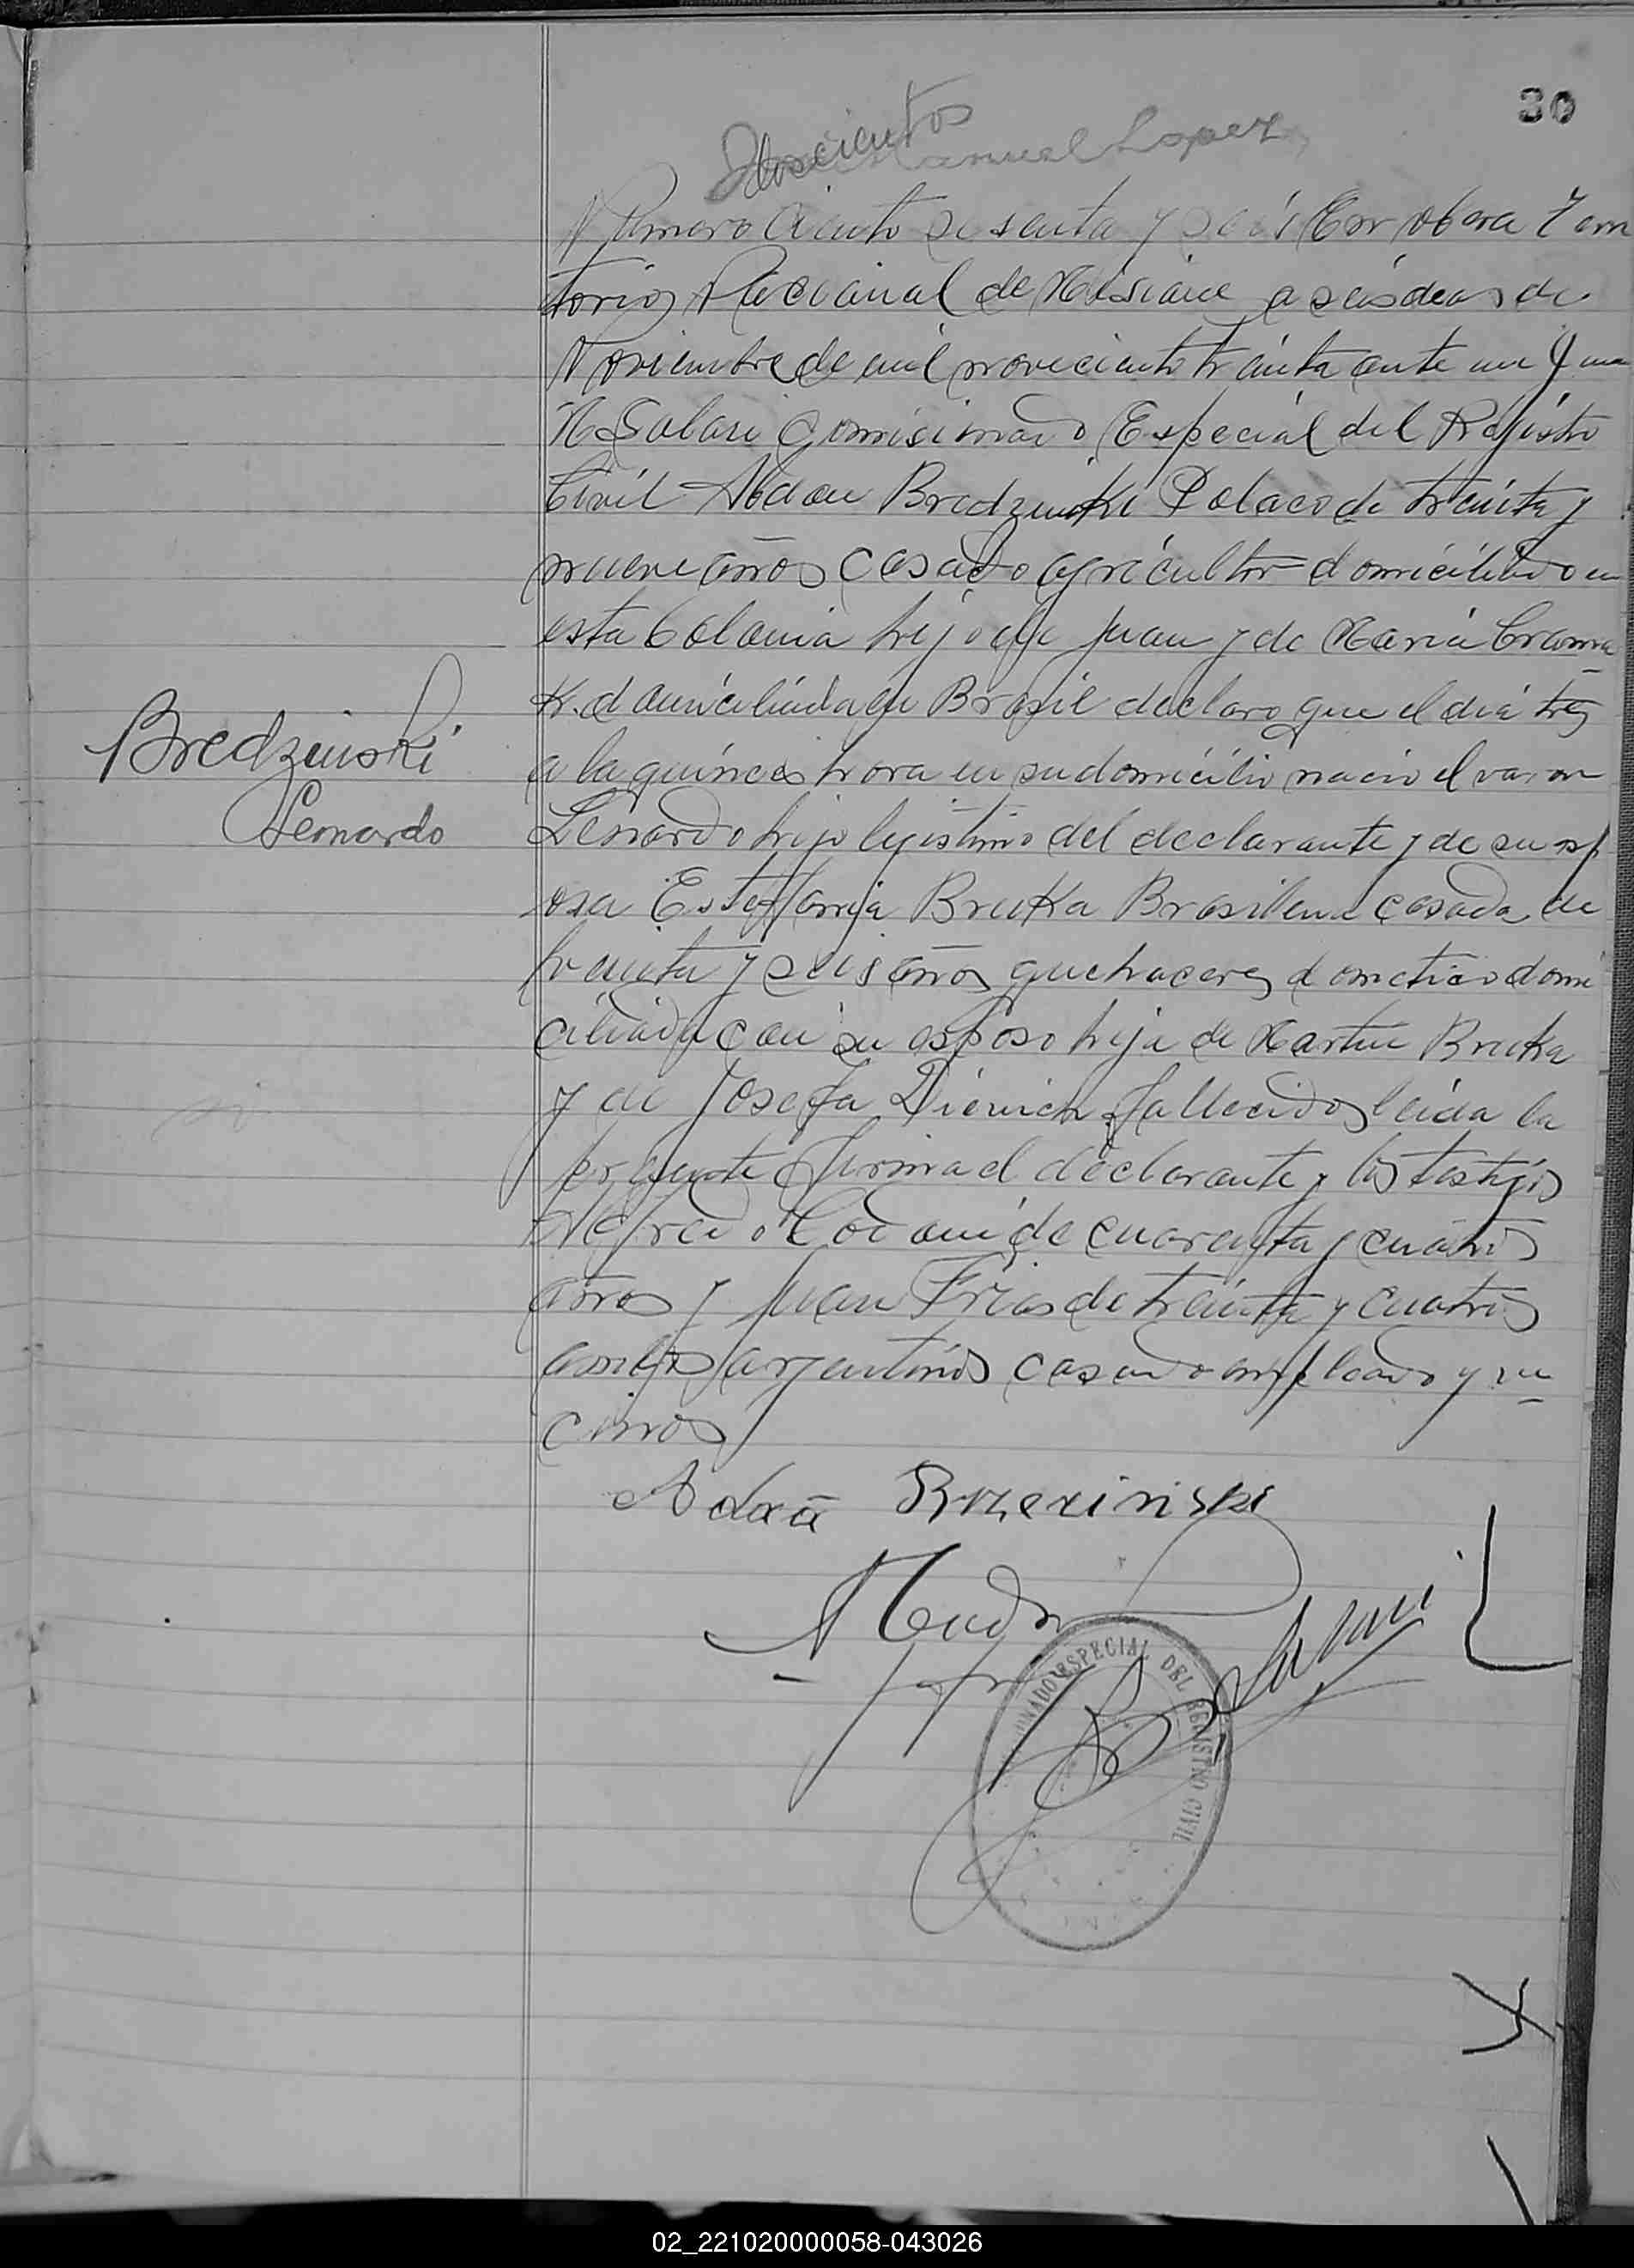 30
Doscientos
Manuel Lopez
Numero Ciento sesenta y seis En Obera Terri
torio Nacional de Misione a seis dias de
Noviembre de mil noveciento treinta ante mi
Solari Comisionado Especial del Registro
Civil Adan Bredzinski Polaco de treinta y
nueve años casado agricultor domiciliado en
esta Colonia hijo de Juan y de Maria
domiciliada en Brasil declaro que el dia tres
a la quince hora en su domicilio nacio el varon
Bredzinski
Leonardo
Leonardo hijo legitimo del declarante y de su esp
osa Estefania Bruka Brasilena casada de
treinta y seis años quehaceres dometico domi
ciliada con su esposo hija de Martin Bruka
y de Josefa fallecidos leida la
presente firma el declarante y los testigos
Alfredo de cuarenta y cuatro
años y Juan Frias de treinta y cuatro
ambos argentinos casado empleado y ve
cinos
Adaã
Solari
COMISIONADO ESPECIAL DEL REGISTRO CIVIL
02_221020000058-043026